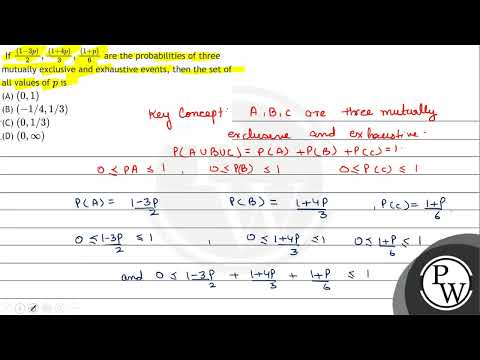 If (1−3p)/2, (1+4p)/3, (1+p)/6 are the probabilities of three
mutually exclusive and exhaustive events, then the set of
all values of p is
(A) (0, 1)
(B) (−1/4, 1/3)
(C) (0, 1/3)
(D) (0, ∞)
Key Concept: A, B, C are three mutually
exclusive and exhaustive.
P(A∪B∪C) = P(A) + P(B) + P(C) = 1
0 ≤ PA ≤ 1 , 0 ≤ P(B) ≤ 1 0 ≤ P(C) ≤ 1
P(A) = 1−3p/2 P(B) = 1+4p/3 , P(C) = 1+p/6
0 ≤ 1−3p/2 ≤ 1 , 0 ≤ 1+4p/3 ≤ 1 0 ≤ 1+p/6 ≤ 1
and 0 ≤ 1−3p/2 + 1+4p/3 + 1+p/6 ≤ 1
P
W